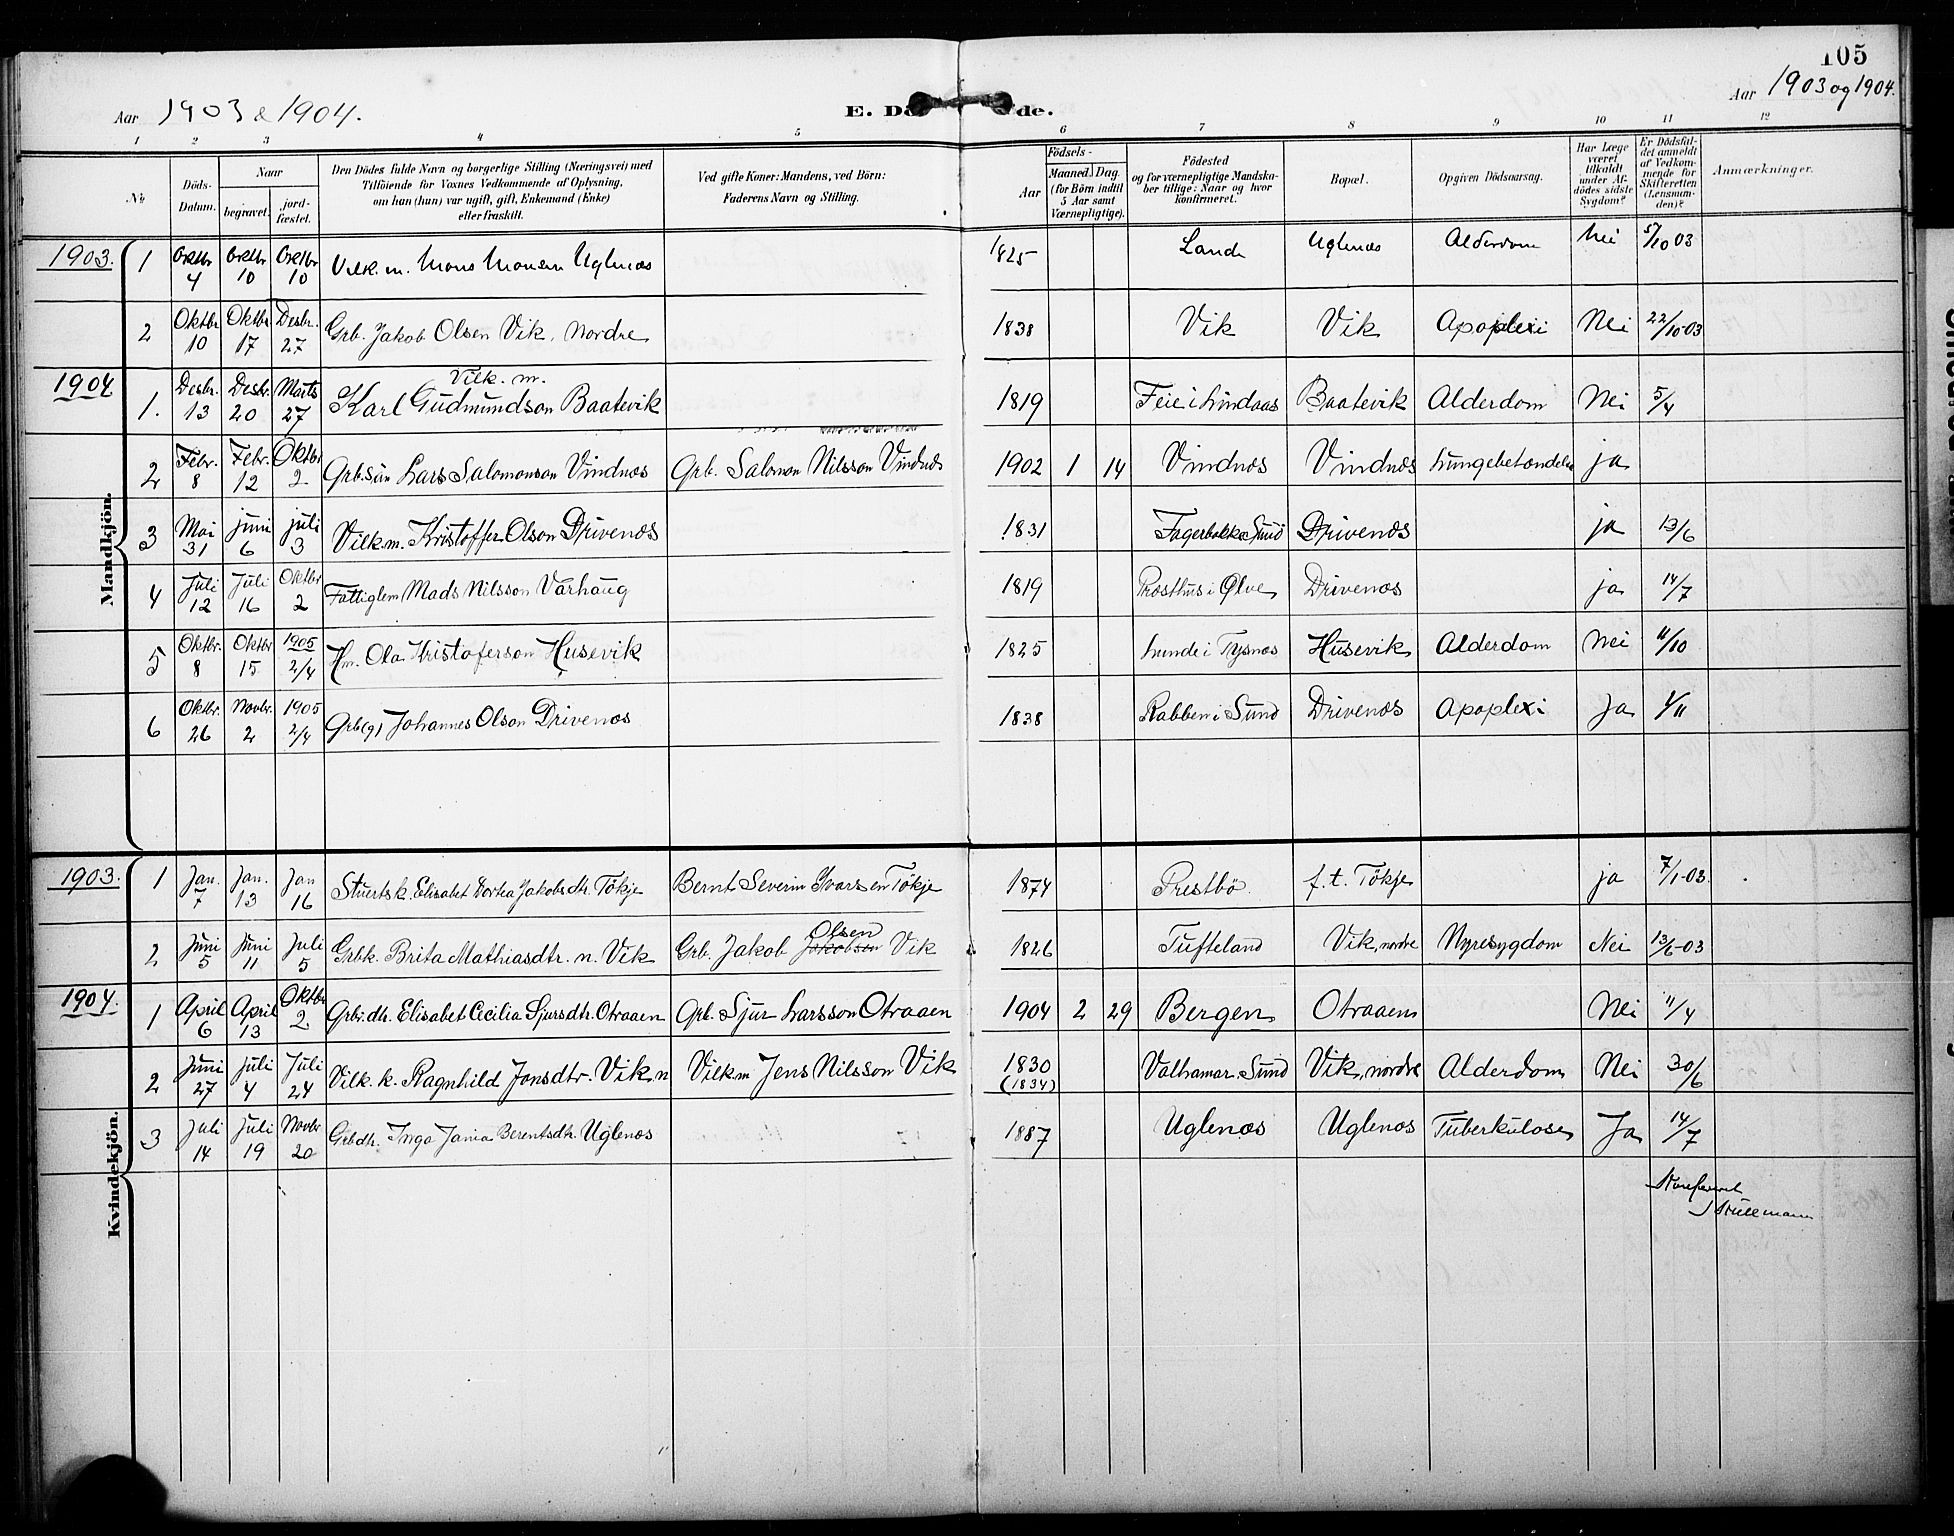 105
Aar 1903 & 1904.
E. Dö de.
Aar 1903 og 1904.
1 2 3 4 5 6 7 8 9 10 11 12
No
Döds-Datum.
Naar
begravet.
jordfæstet.
Den Dödes fulde Navn og borgerlige Stilling (Næringsvei) med
Tilföiende for Voxnes Vedkommende af Oplysning,
om han (hun) var ugift, gift, Enkemand (Enke)
eller fraskilt.
Ved gifte Koner: Mandens, ved Börn:
Faderens Navn og Stilling.
Födsels-
Aar
Maaned. Dag.
(for Börn indtil
5 Aar samt
Værnepligtige).
Födested
og for værnepligtige Mandska-
ber tillige: Naar og hvor
konfirmeret.
Bopæl.
Opgiven Dödsaarsag.
Har Læge
været
tilkaldt
under Af-
dödes sidste
Sygdom?
Er Dödsfal-
det anmeldt
af Vedkom-
mende for
Skifteretten
(Lensman-
den)?
Anmærkninger.
Mandkjön.
1903. 1 Oktbr 4 Oktbr 10 Oktbr 10 Vilk. m. Mons Monsen Uglenæs 1825 Lande Uglenæs Alderdom Nei 5/10 03
2 Oktbr 10 Oktbr 17 Desbr. 27 Grb. Jakob Olsen Vik, nordre 1838 Vik Vik Apoplexi Nei 22/10-03
1904 1. Desbr. 13 Desbr. 20 Marts 27 Vilk. m. Karl Gudmundson Baatevik 1819 Feie i Lindaas Baatevik Alderdom Nei 5/4
2 Febr. 8 Febr. 12 Oktbr 2 Grb.sön Lars Salomonson Vindnæs Grb. Salomon Nilsson Vindnæs 1902 1 14 Vindnæs Vindnæs Lungebetændelse ja
3 Mai 31 juni 6 juli 3 Vilk.m. Kristoffer Olson Drivenæs 1831 Fagerbakke Sund Drivenæs ja 13/6
4 Juli 12 Juli 16 Oktbr 2 Fattiglem Mads Nilsson Varhaug 1819 Prosthus i Ølve Drivenæs ja 14/7
5 Oktbr. 8 Oktbr 15 1905 2/4 Hm. Ola Kristoferson Husevik 1825 Lunde i Tysnæs Husevik Alderdom Nei 11/10
6 Oktbr. 26 Novbr. 2 1905 2/4 Grb(g) Johannes Olson Drivenæs 1838 Rabben i Sund Drivenæs Apoplexi Ja 1/11
Kvindekjön.
1903. 1 Jan. 7 Jan. 13 Jan 16 Stuertsk. Elisabet Dortea Jakobsdtr. Tökje Bernt Severin Ivarsen Tökje 1874 Prestbö f.t. Tökje ja 7/1-03.
2 Juni 5 Juni 11 Juli 5 Grbk. Brita Mathiasdtr. n. Vik Grb. Jakob Jakobsen Olsen Vik 1826 Tufteland Vik, nordre Nyresygdom Nei 13/6-03
1904. 1 April 6 April 13 Oktbr 2 Grbr.dtr. Elisabet Cecilia Sjursdtr. Otraaen Grb. Sjur Larsson Otraaen 1904 2 29 Bergen Otraaen Nei 11/4
2 Juni 27 Juli 4 Juli 24 Vilk. k. Ragnhild Jonsdtr. Vik n Vilk.m Jens Nilsson Vik 1830 (1834) Valhamar. Sund Vik, nordre Alderdom Nei 30/6
3 Juli 14 Juli 19 Novbr 20 Grb.dtr. Inga Jania Berentsdtr. Uglenæs 1887 Uglenæs Uglenæs Tuberkulose Ja 14/7